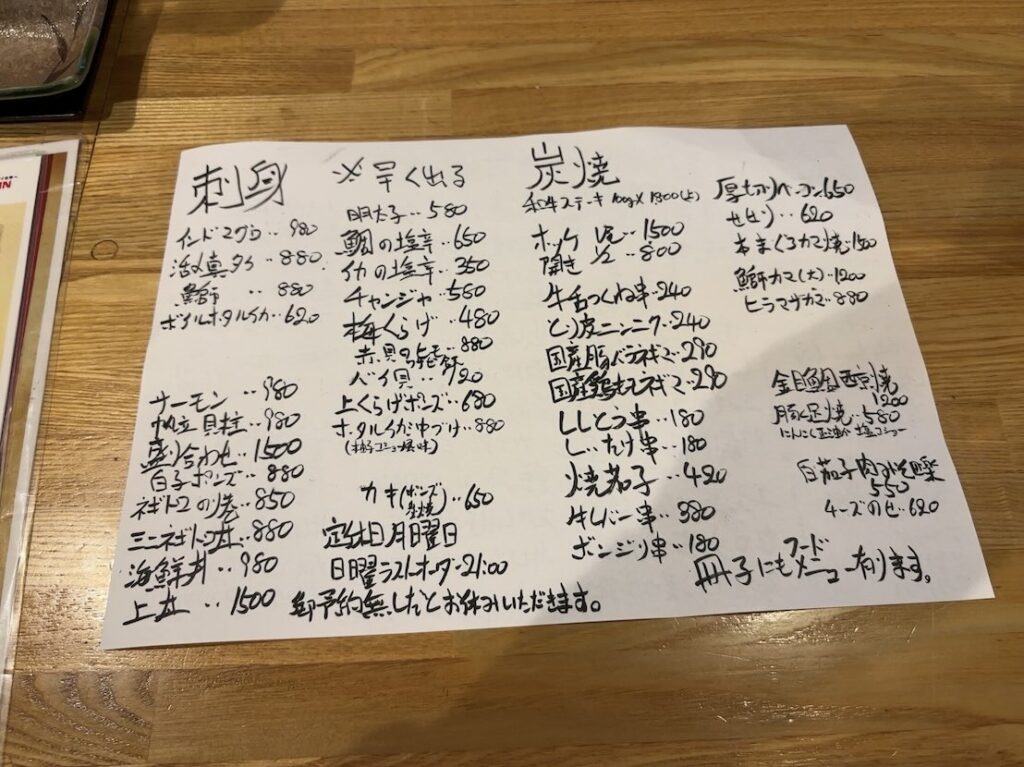 刺身
インドマグロ‥980
活〆真ダコ‥880
鰤‥880
ボイルホタルイカ‥620
サーモン‥980
帆立貝柱‥980
盛り合わせ‥1500
白子ポンズ‥880
ネギトロの巻‥850
ミニネギトロ丼‥880
海鮮丼‥980
上丼‥1500
※早く出る
明太子‥580
鯛の塩辛‥650
イカの塩辛‥350
チャンジャ‥580
梅くらげ‥480
赤貝 880
バイ貝‥720
上くらげポンズ‥680
ホタルイカ沖づけ‥880
カキ(ポンズ ‥650
定休日月曜日
日曜ラストオーダー21:00
御予約無しだとお休みいただきます。
炭焼
和牛ステーキ 100g¥1800(上)
ホッケ 1尾‥1500
開き 1/2‥800
牛舌つくね串‥240
とり皮ニンニク‥240
国産豚バラネギマ‥290
国産鶏ももネギマ‥290
ししとう串‥180
しいたけ串‥180
焼茄子‥420
牛レバー串‥380
ボンジリ串‥180
厚切りベーコン‥650
せせり‥620
本まぐろカマ焼‥1500
鰤カマ(大)‥1200
ヒラマサカマ‥880
金目鯛西京焼
1200
豚足焼‥580
白茄子肉みそ田楽
550
チーズのせ‥620
冊子にもフードメニュー有ります。
IN